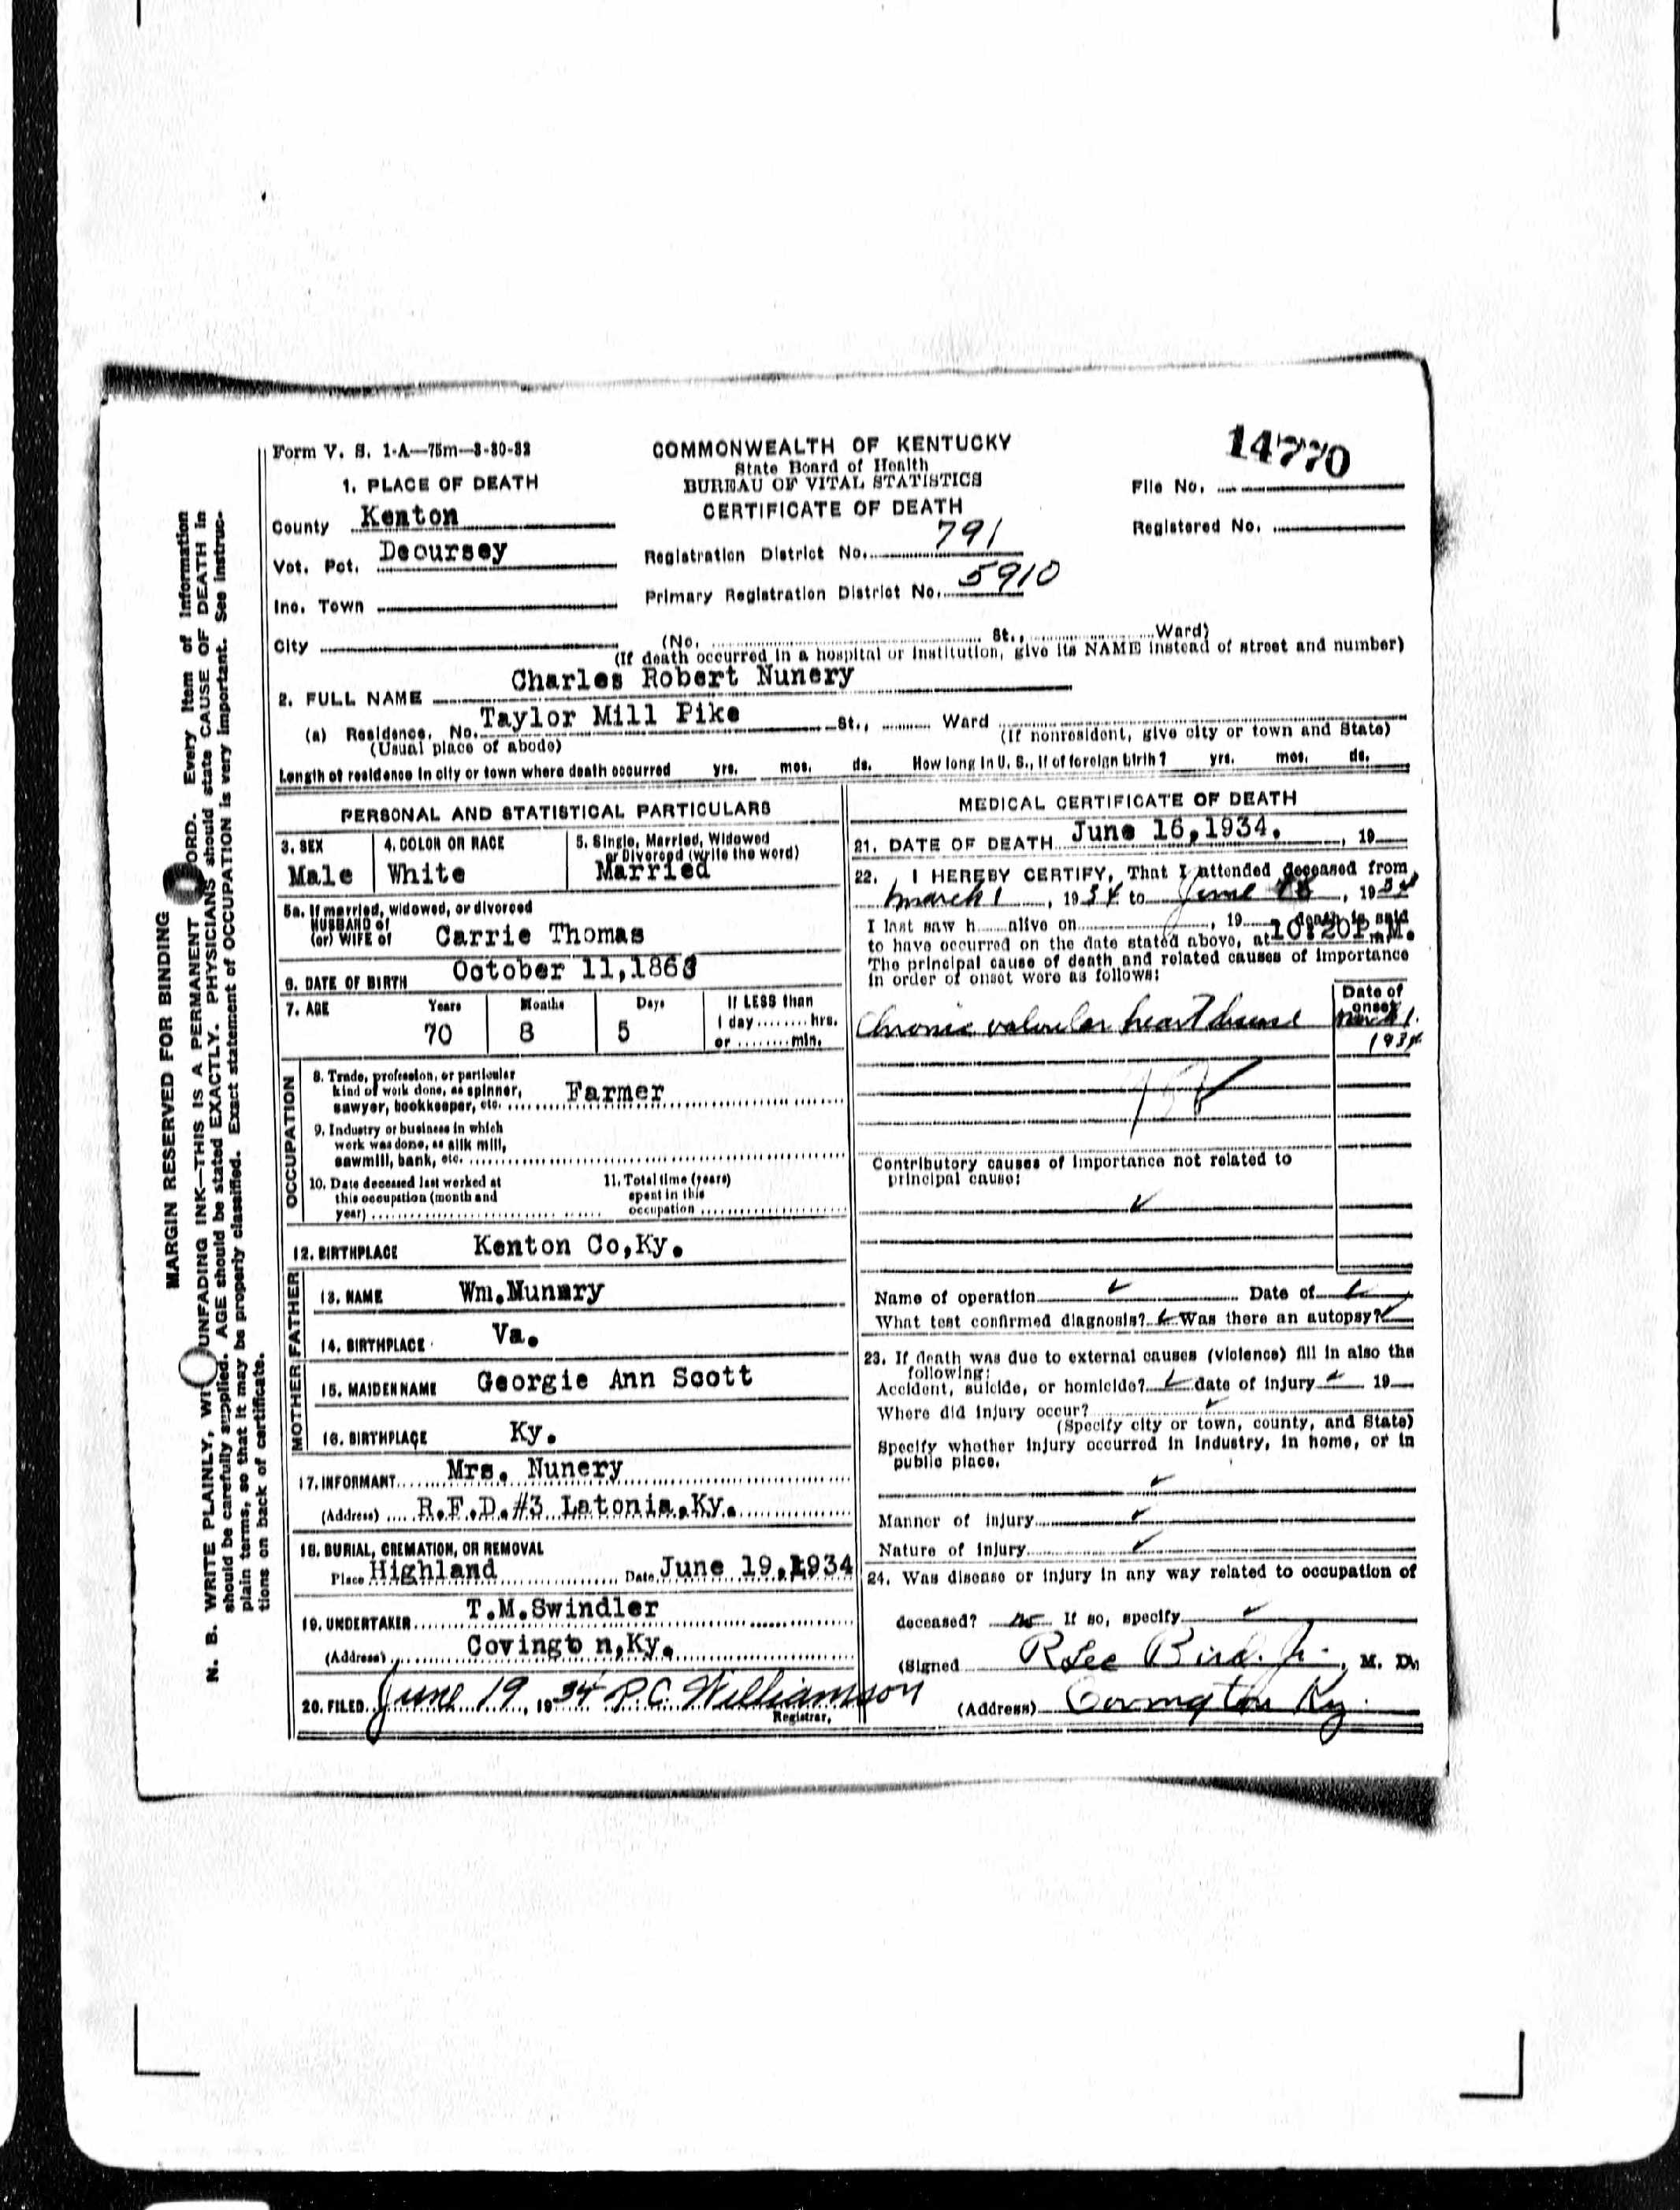 Form V. S. 1-A—75m—3-30-33
COMMONWEALTH OF KENTUCKY
State Board of Health
BUREAU OF VITAL STATISTICS
CERTIFICATE OF DEATH
14770
File No.
Registered No.
1. PLACE OF DEATH
County Kenton
Vot. Pct. Decursey
Inc. Town
City
Registration District No. 791
Primary Registration District No. 5910
(No. St., Ward)
(If death occurred in a hospital or institution, give its NAME instead of street and number)
2. FULL NAME Charles Robert Nunery
(a) Residence. No. Taylor Mill Pike St., Ward
(Usual place of abode)
(If nonresident, give city or town and State)
Length of residence in city or town where death occurred yrs. mos. ds. How long in U. S., if of foreign birth? yrs. mos. ds.
PERSONAL AND STATISTICAL PARTICULARS
3. SEX Male
4. COLOR OR RACE White
5. Single, Married, Widowed
or Divorced (write the word)
Married
5a. If married, widowed, or divorced
HUSBAND of
(or) WIFE of Carrie Thomas
6. DATE OF BIRTH October 11,1863
7. AGE Years Months Days If LESS than
1 day hrs.
or min.
70 8 5
OCCUPATION
8. Trade, profession, or particular
kind of work done, as spinner,
sawyer, bookkeeper, etc. Farmer
9. Industry or business in which
work was done, as silk mill,
sawmill, bank, etc.
10. Date deceased last worked at
this occupation (month and
year)
11. Total time (years)
spent in this
occupation
12. BIRTHPLACE Kenton Co,Ky.
FATHER
13. NAME Wm.Nunery
14. BIRTHPLACE Va.
MOTHER
15. MAIDEN NAME Georgie Ann Scott
16. BIRTHPLACE Ky.
17. INFORMANT Mrs. Nunery
(Address) R.F.D.#3 Latonia,Ky.
18. BURIAL, CREMATION, OR REMOVAL
Place Highland Date June 19,1934
19. UNDERTAKER T.M.Swindler
(Address) Covingto n,Ky.
20. FILED June 19, 1934 P.C. Williamson
Registrar.
MEDICAL CERTIFICATE OF DEATH
21. DATE OF DEATH June 16,1934. , 19
22. I HEREBY CERTIFY, That I attended deceased from
March 1, 1934 to June , 1934
I last saw h alive on , 19 death is said
to have occurred on the date stated above, at 10:20P.M. m.
The principal cause of death and related causes of importance
in order of onset were as follows:
Date of
onset
Chronic valvular heart disease March 1.
1934
Contributory causes of importance not related to
principal cause:
Name of operation Date of
What test confirmed diagnosis? Was there an autopsy?
23. If death was due to external causes (violence) fill in also the
following:
Accident, suicide, or homicide? date of injury 19
Where did injury occur?
(Specify city or town, county, and State)
Specify whether injury occurred in industry, in home, or in
public place.
Manner of injury
Nature of injury
24. Was disease or injury in any way related to occupation of
deceased? no If so, specify
(Signed R Lee Bird. Jr. , M. D.
(Address) Covington Ky.
MARGIN RESERVED FOR BINDING
N. B. WRITE PLAINLY, WI UNFADING INK—THIS IS A PERMANENT ORD. Every item of information
should be carefully supplied. AGE should be stated EXACTLY. PHYSICIANS should state CAUSE OF DEATH in
plain terms, so that it may be properly classified. Exact statement of OCCUPATION is very important. See instruc-
tions on back of certificate.